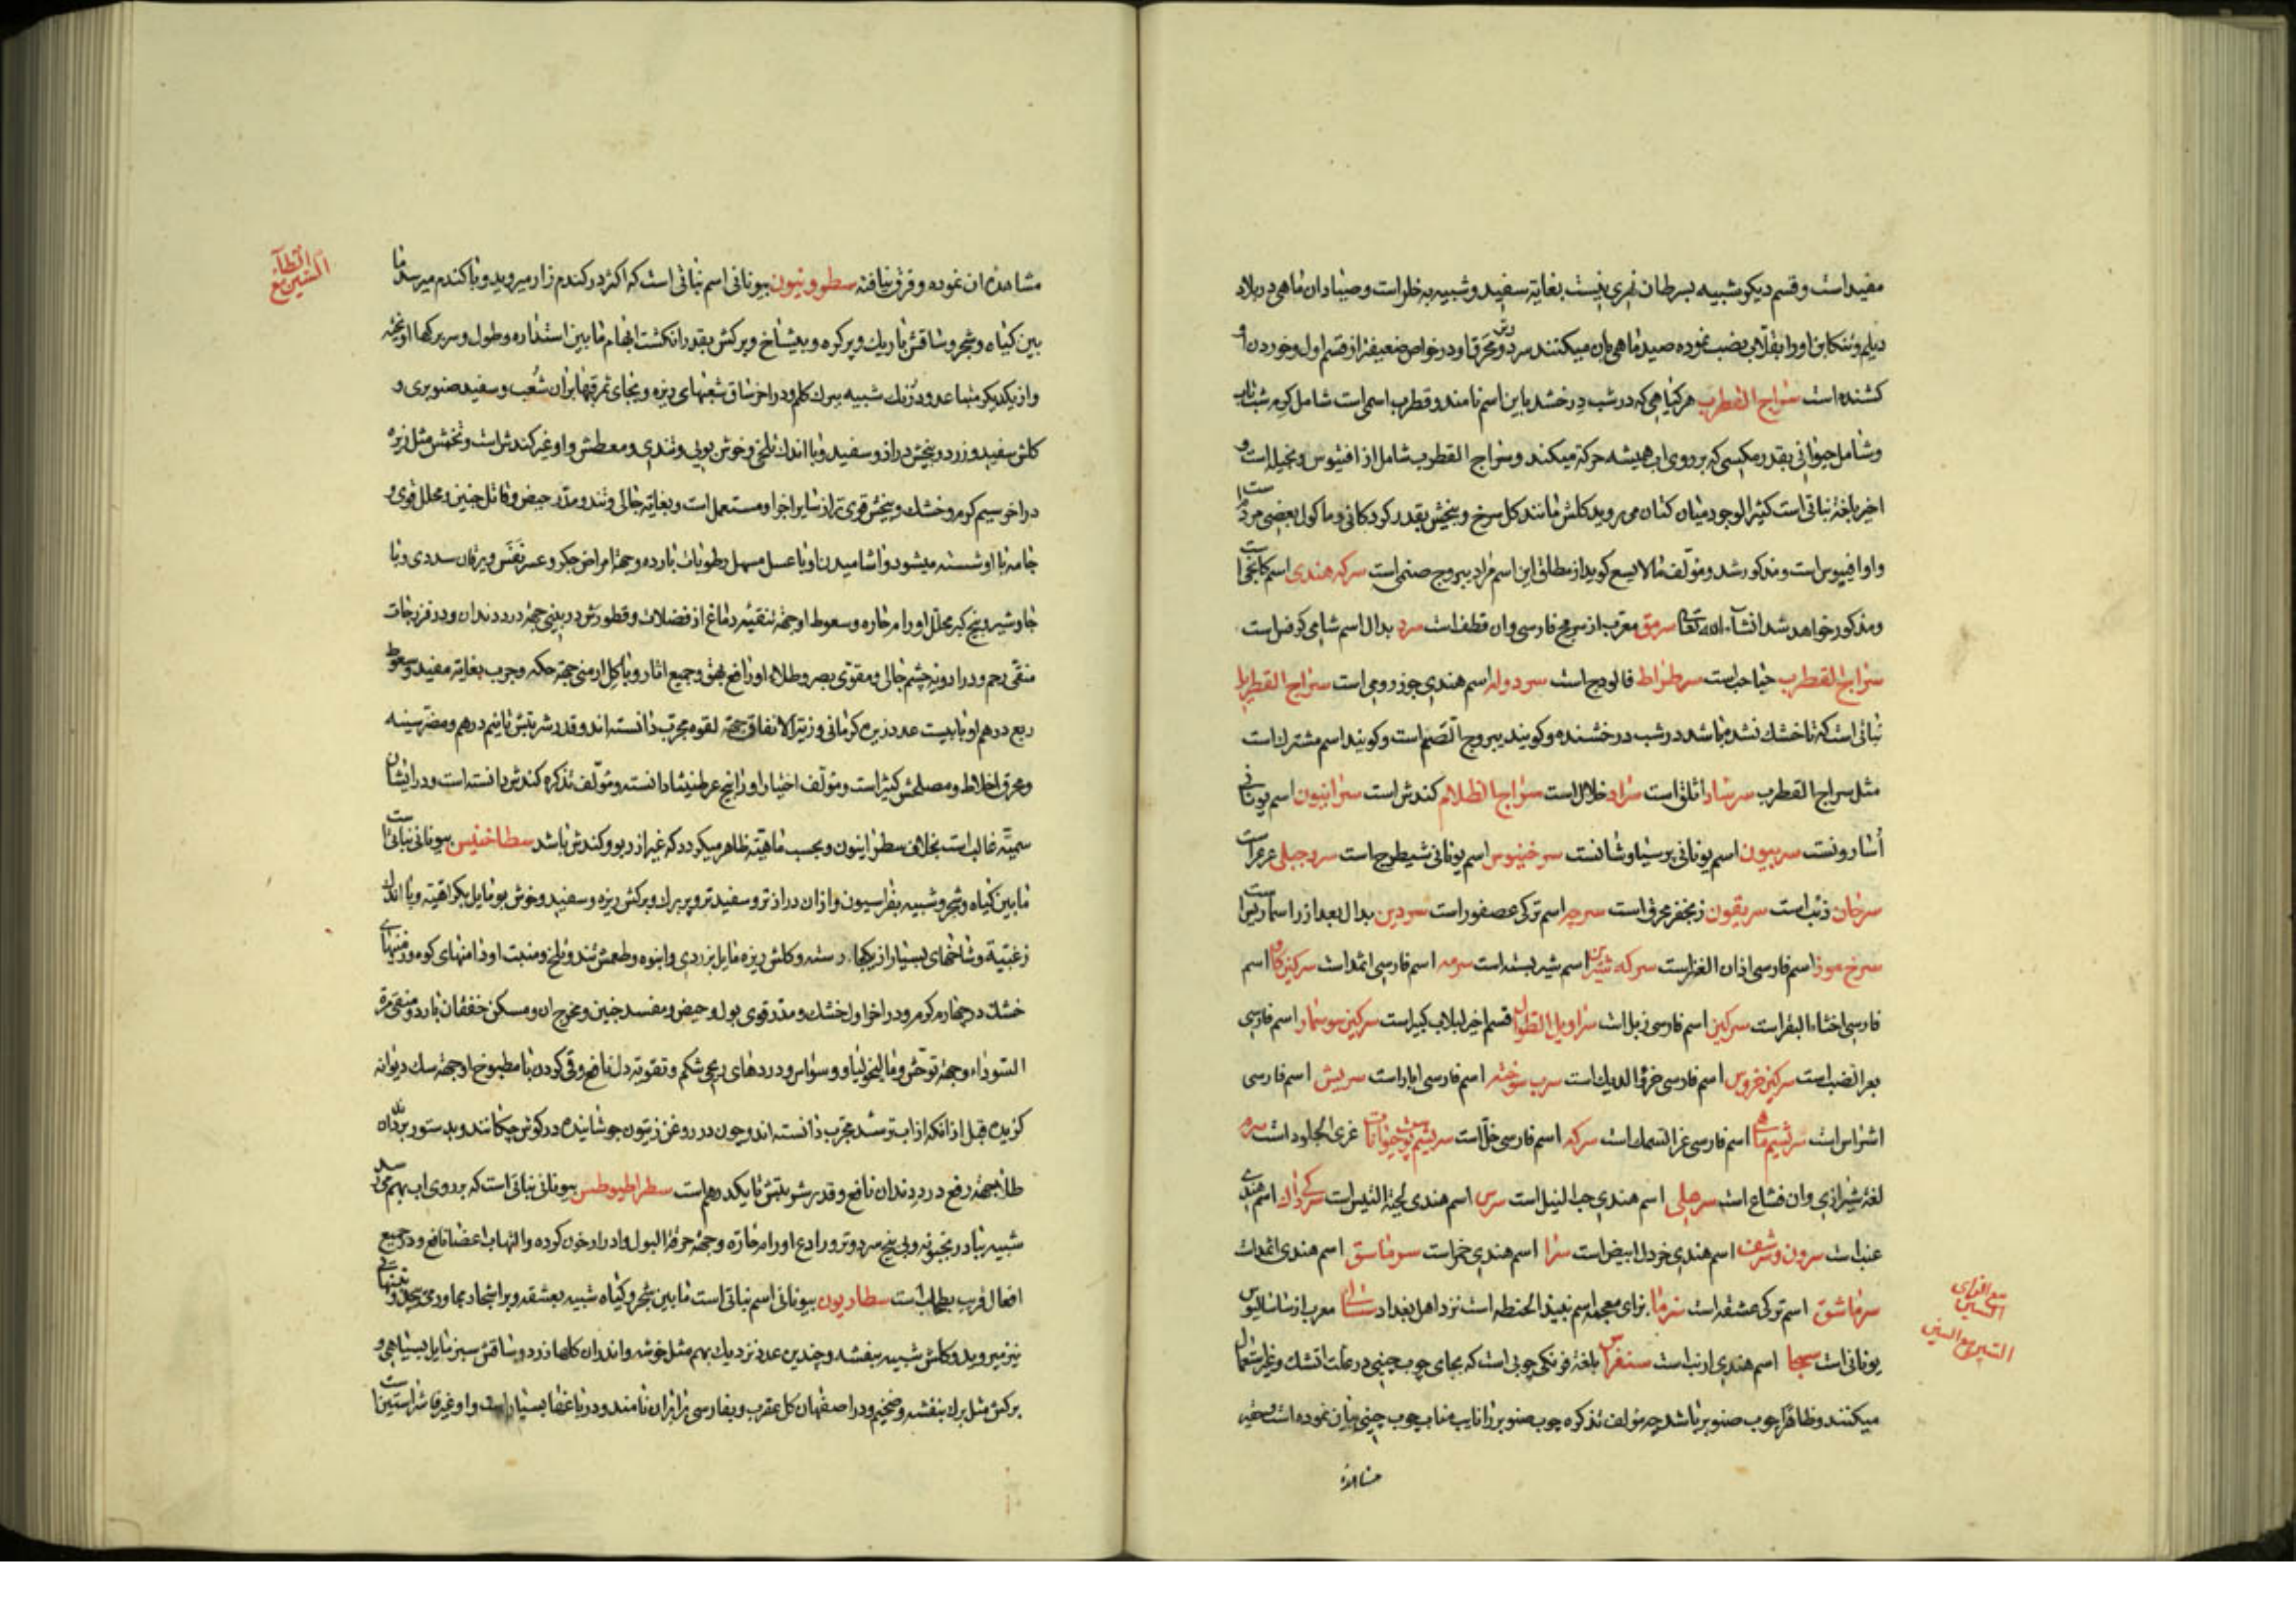 مفید است و قسم دیکر شبیه بسرطان نهری نیست بغایة سفید و شبیه به خلر است و صیادان ماهی در بلاد
دیلم و تنکابن او را بقلاب نصب نموده صید ماهی بان میکنند سرد و محرق او در خواص ضعیفتر از قسم اول و خوردن او
کشنده است سراج القطرب هر کیاهی که در شب درخشد باین اسم نامند و قطرب اسمی است شامل کرم شب تاب
و شامل حیوانی بقدر مکسی که بر روی اب همیشه حرکة میکند و سراج القطرب شامل از افیوس و نخیله است و
اخیر بلغة نباتی است کثیر الوجود میان کتان می روید کلش مانند کل سرخ و بیخش بقدر کردکانی و ماکول بعضی مردم است
و او افیوس است و مذکور شد و مؤلف مالایسع کوید از مطلق این اسم مراد یبروج صنمی است سرکه هندی اسم کانجی است
و مذکور خواهد شد انشاء الله تعالی سرمق معرب از سرمج فارسی و ان قطف است سرد بدال اسم شامی کرفس است
سراج القطرب حباحب است سرطراط فالودج است سردوله اسم هندی جوز رومی است سراج القطربل
نباتی است که تا خشک نشده باشد در شب درخشنده و کویند یبروج الصنم است و کویند اسم مشترک است
مثل سراج القطرب سرشاد اثلق است سراد خلال است سراج الظلام کندش است سرانیون اسم یونانی
أسارونست سریبون اسم یونانی پرسیاوشانست سرخینوس اسم یونانی شیطرج است سرو جبلی عرعر است
سرحان ذئب است سریقون زنجفر محرق است سرچه اسم ترکی عصفور است سردین بدال بعد از را سماریس است
سرخ موز اسم فارسی اذان الغزاست سرکه شیر اسم شیر بسته است سرمه اسم فارسی اثمد است سرکین کاو اسم
فارسی اخثاء البقر است سرکین اسم فارسی زبل است سراویل الطوال قسم اخیر لبلاب کبیر است سرکین سوسمار اسم فارسی
بعر الضب است سرکین خروس اسم فارسی خرؤ الدیک است سرب سوخته اسم فارسی ابار است سریش اسم فارسی
اشراس است سریشم ماهی اسم فارسی غرا السمک است سرکه اسم فارسی خلّ است سریشم پوست حیوانات غری الجلود است سرمه
لغة شیرازی و ان فشاع است سرحلی اسم هندی حب النیل است سرس اسم هندی لحیة التیس است اسم هندی
عنب است سرون و سرشف اسم هندی خردل ابیض است سرا اسم هندی خمر است سرماسق اسم هندی اثمد است
سرماشق اسم ترکی عشقه است سزما بزای معجمه اسم نبیذ الحنطه است نزد اهل بغداد معرب از ساسالیوس
یونانی است سسجا اسم هندی ارنب است سسنفراس بلغة فرنکی چوبی است که بجای چوب چینی در علت اتشک و غیره استعمال
میکنند و ظاهرا چوب صنوبر باشد چه مؤلف تذکره چوب صنوبر را نایب مناب چوب چینی بیان نموده است و حقیر
مشاهده
مع الزای السین
السین مع السین
السین مع الطاء
مشاهدهٔ ان نموده و فرق نیافته سطوونیون بیونانی اسم نباتی است که اکثر در کندم زار میروید و با کندم میرسد ما
بین کیاه و شجر و ساقش باریک و پر کره و بیشاخ و برکش بقدر انکشت ابهام ما بین استداره و طول و سر برکها اویخته
و از یکدیکر متباعد و در رنک شبیه ببرک کلم و در اخر ساق شعبهای ریزه و بجای ثمر قبها بران شعب و سفید صنوبری و
کلش سفید و زرد و بیخش دراز و سفید و با اندک تلخی و خوش بویی و تندی و معطش و او غیر کندش است و تخمش مثل زیره
در اخر سیم کرم و خشک و بیخش قوی تر از سایر اجزا و مستعمل است و بغایة جالی و تند و مدر حیض و قاتل جنین و محلل قوی و
جامه با او شسته میشود و اشامیدن او با عسل مسهل رطوبات بارده و جهة امراض جکر و عسر نفس و یرقان سددی و با
جاوشیر و بیخ کبر محلل اورام حاره و سعوط او جهة تنقیه دماغ از فضلات و قطورش در بینی جهة درد دندان و در فرزجات
منقی رحم و در ادویه چشم جالی و مقوی بصر و طلاء او رافع بهق و جمیع اثار و با کل ارمنی جهة حکه و جرب بغایة مفید و سعوط
ربع درهم او با بیست عدد زیره کرمانی و زیت الانفاق جهة لقوه مجرب دانسته اند و قدر شربتش تا نیم درهم و مضر سینه
و محرق اخلاط و مصلحش کتیر است و مؤلف اختیارات او را بیخ عرطنیثا دانسته و مؤلف تذکره کندش دانسته است و در ایشان
سمیّة غالب است بخلاف سطرانیون و بحسب ماهیّة ظاهر میکردد که غیر از ربو و کندش باشد سطاخیس بیونانی نباتی است
ما بین کیاه و شجر و شبیه بفراسیون و از ان دراز تر و سفید تر و پر برک و برکش ریزه و سفید و خوش بو مایل بکراهیة و با اندک
زغبیة و شاخهای بسیار از یکجا رسته و کلش ریزه مایل بزردی و انبوه و طعمش تند و تلخ و منبت او دامنهای کوه و زمینهای
خشک در چهارم کرم و در اخر اول خشک و مدر قوی بول و حیض و مفسد جنین و مخرج ان و مسکن خفقان بارد و منقی مرة
السوداء و جهة توحّش و مالیخولیا و وسواس و دردهای ریحی شکم و تقویة دل نافع و قی کردن با مطبوخ او جهة سک دیوانه
کزیده قبل از انکه از اب ترسد مجرب دانسته اند و چون در روغن زیتون جوشانیده در کوش چکانند و بدستور بر دندان
طلا جهة رفع درد دندان نافع و قدر شربتش تا یکدرهم است سطراطیوطس بیونانی نباتی است که بر روی اب بهم میرسد
شبیه ببادرنجبویه و بی بیخ سرد و تر و رادع اورام حارّه و جهة حرقة البول و ادرار خون کرده و التهاب اعضا نافع و در جمیع
افعال قریب بطحلب است سطاریون بیونانی اسم نباتی است ما بین شجر و کیاه شبیه بعشقه و بر اشجار مجاور می پیچد و در زمینهای
نیز میروید و کلش شبیه ببنفشه و چندین عدد نزدیک بهم مثل خوشه و اندرون کلها زرد و ساقش سبز مایل بسیاهی و
برکش مثل برک بنفشه و ضخیم و در اصفهان کل عقرب و بفارسی نامند و در باغها بسیار است و او غیر است